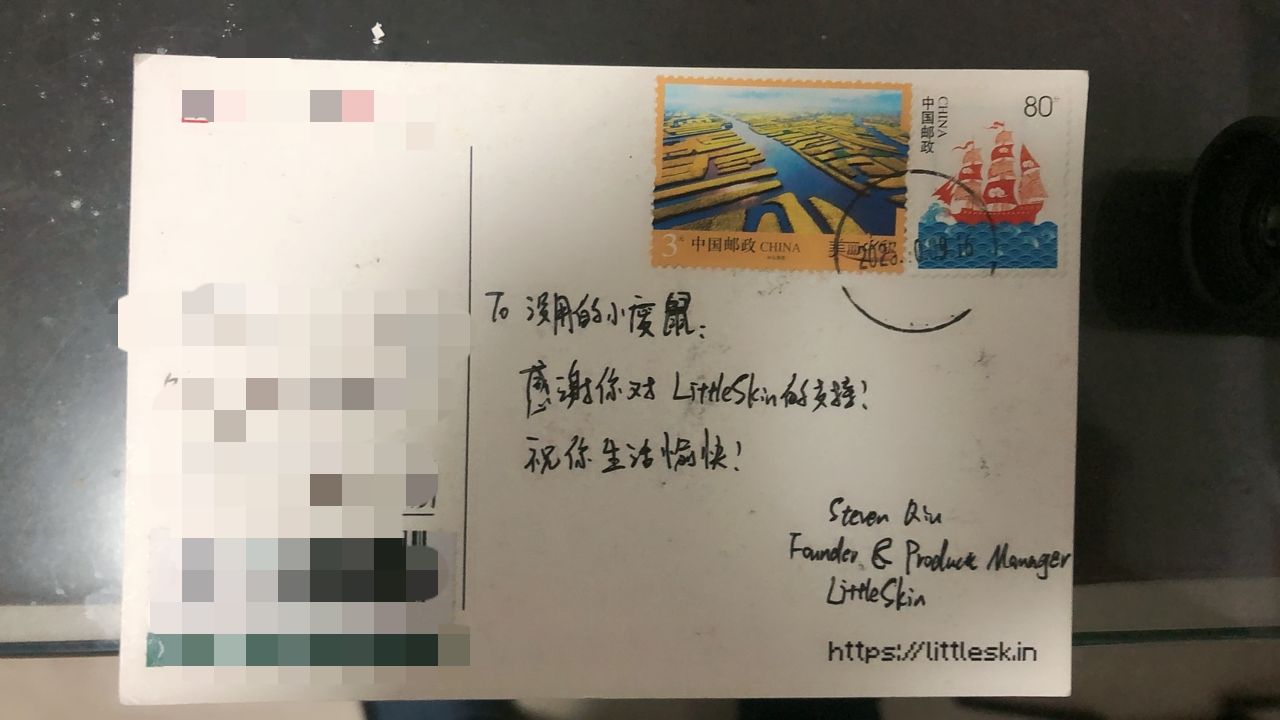 80分
中国邮政
CHINA
3元 中国邮政 CHINA
To 没用的小废鼠:
感谢你对 LittleSkin的支持!
祝你生活愉快!
Steven Qiu
Founder & Product Manager
LittleSkin
https://littlesk.in